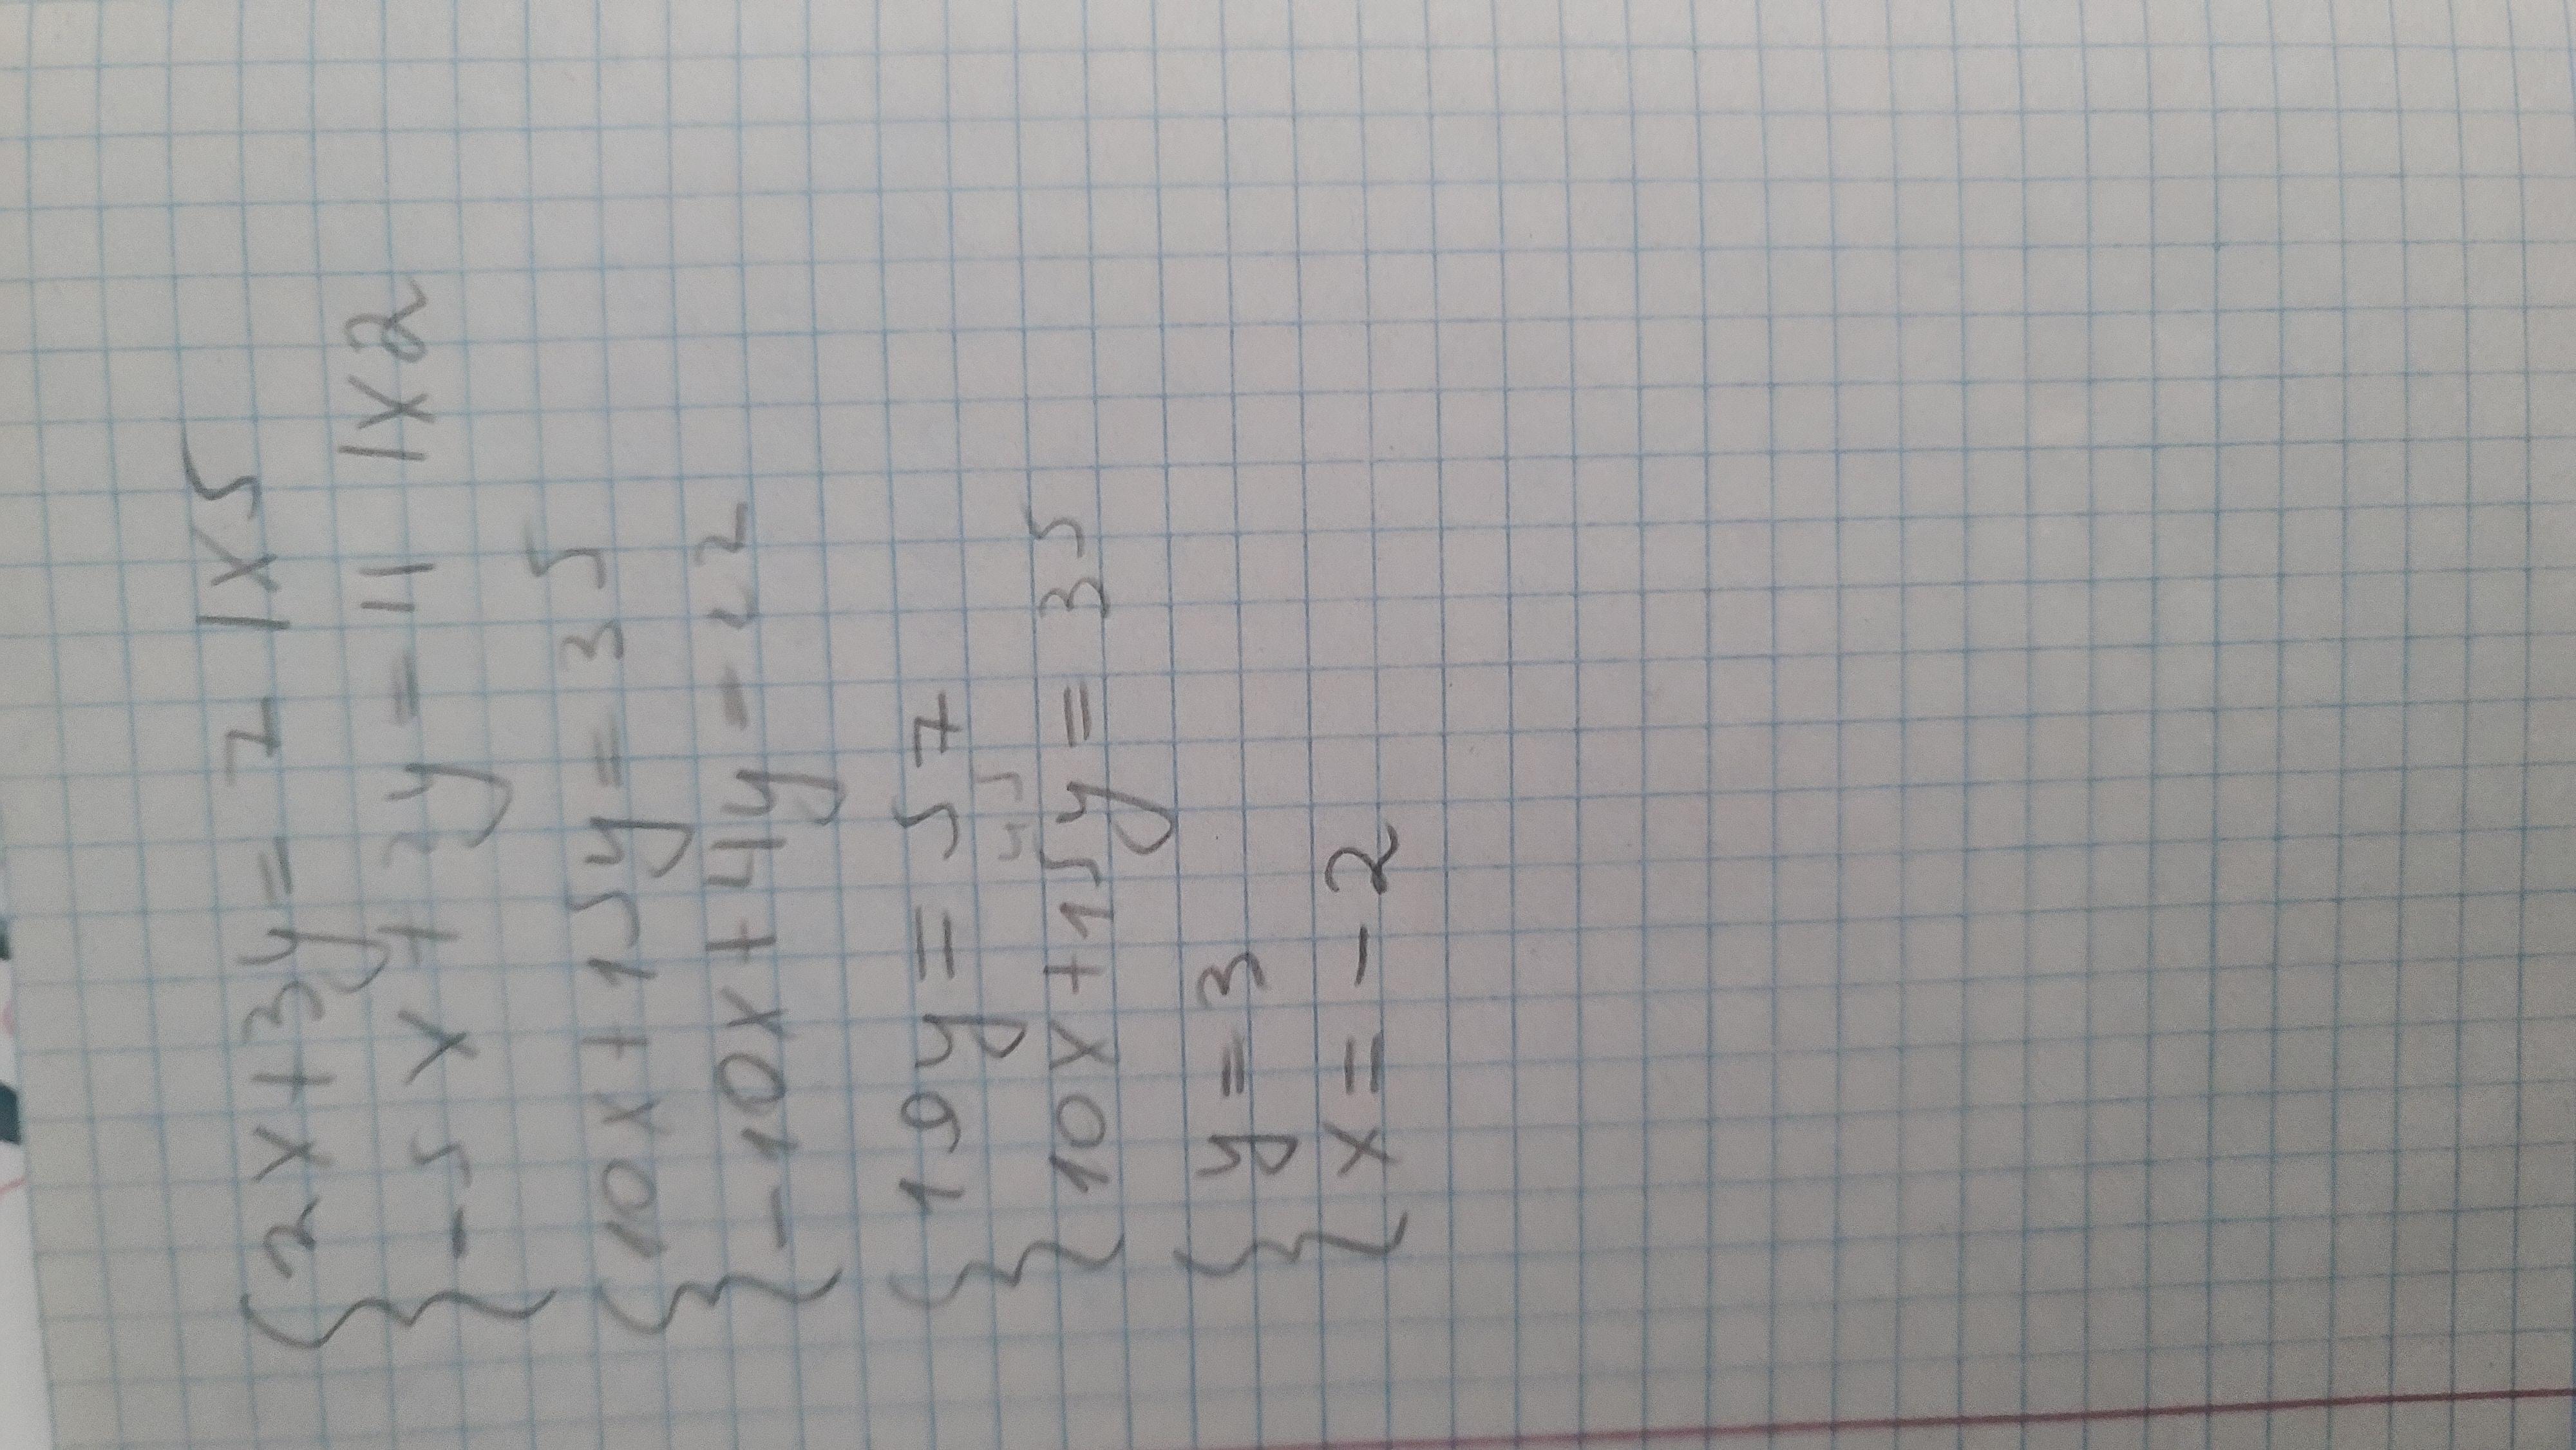 { 2x+3y= 7 |x5
-5x+2y=11 |x2
{ 10x+15y=35
-10x+4y=22
{ 19y=57
45
10x+15y=35
{ y=3
x=-2